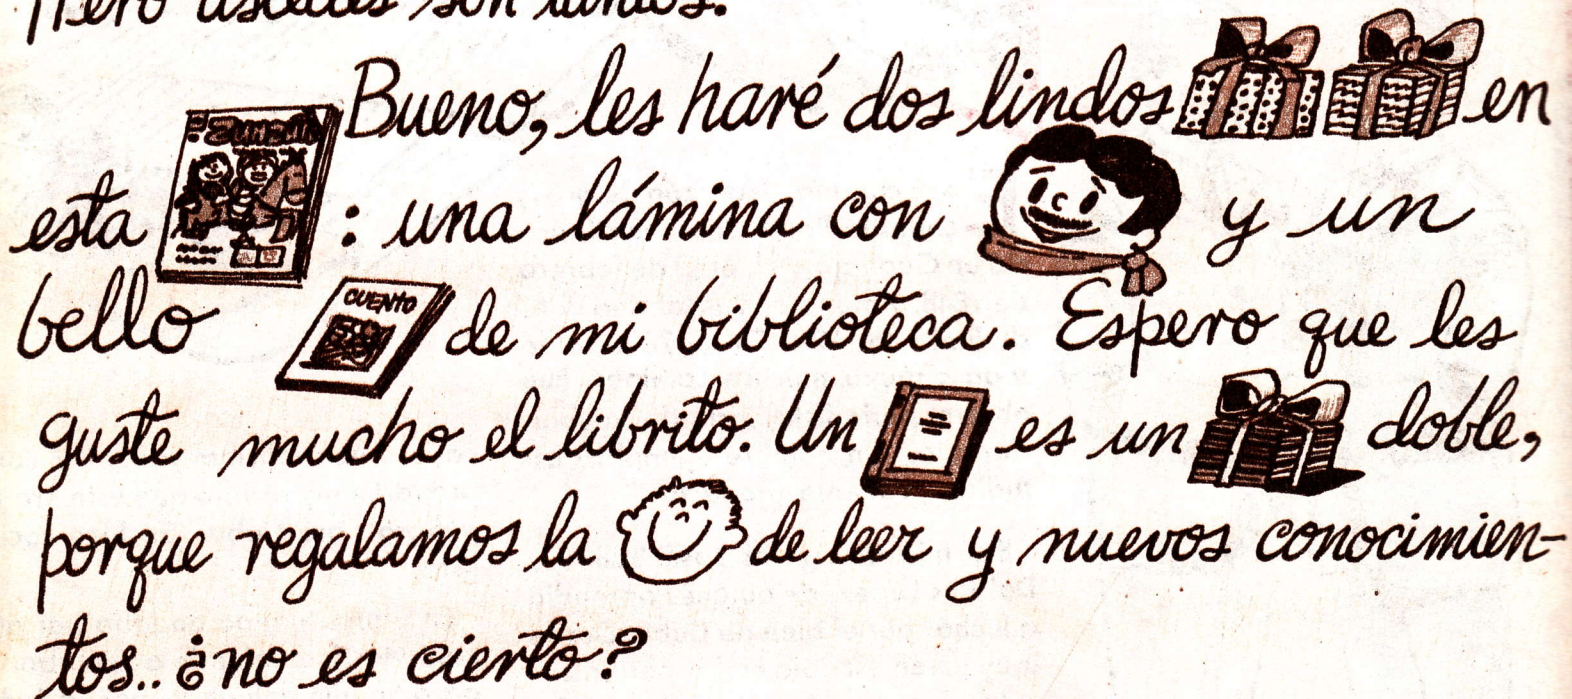 Pero ustedes son tantos.
Bueno, les haré dos lindos en
esta : una lámina con y un
bello CUENTO de mi biblioteca. Espero que les
guste mucho el librito. Un es un doble,
porque regalamos la de leer y nuevos conocimien-
tos.. ¿no es cierto?